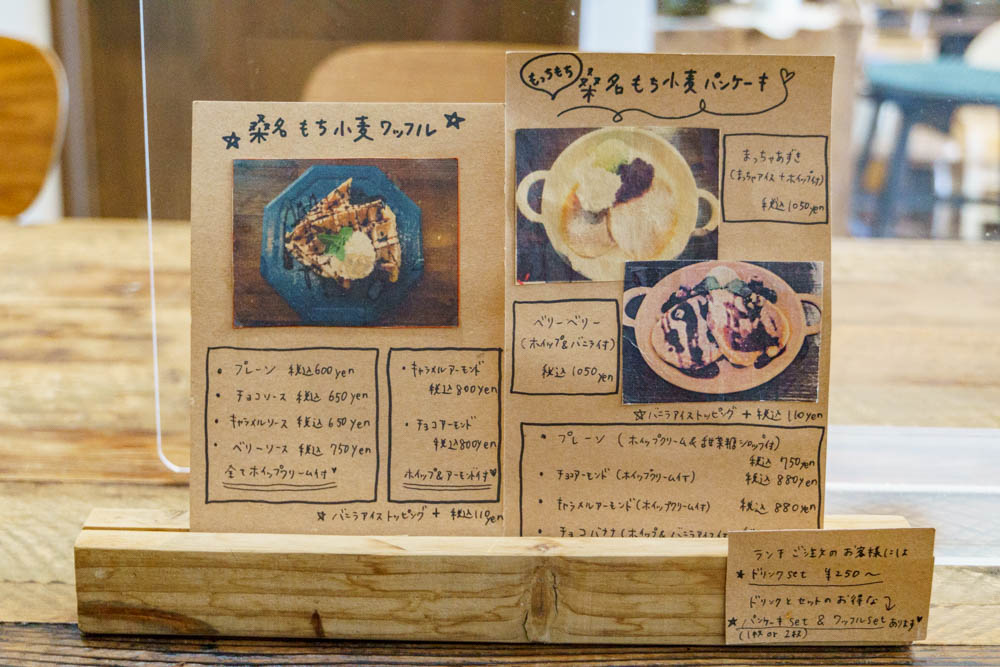 ☆桑名 もち小麦 ワッフル☆
・プレーン 税込600yen
・チョコソース 税込 650yen
・キャラメルソース 税込650yen
・ベリーソース 税込 750yen
全てホイップクリーム付♥
・キャラメルアーモンド
税込800yen
・チョコアーモンド
税込800yen
ホイップ&アーモンド付♥
☆バニラアイストッピング + 税込110yen
もっちもち
桑名もち小麦パンケーキ♡
まっちゃあずき
(まっちゃアイス+ホイップ付)
税込1050yen
ベリーベリー
(ホイップ&バニラ付)
税込 1050yen
☆バニラアイストッピング + 税込110yen
・プレーン (ホイップクリーム&甜菜糖シロップ付)
税込 750yen
・チョコアーモンド (ホイップクリーム付) 税込 880yen
・キャラメルアーモンド(ホイップクリーム付) 税込 880yen
・チョコバナナ(ホイップ&バニラアイス付
ランチ ご注文のお客様には
★ドリンクset ¥250〜
ドリンクとセットのお得な
★パンケーキset & ワッフルsetあります♥
(1枚or2枚)